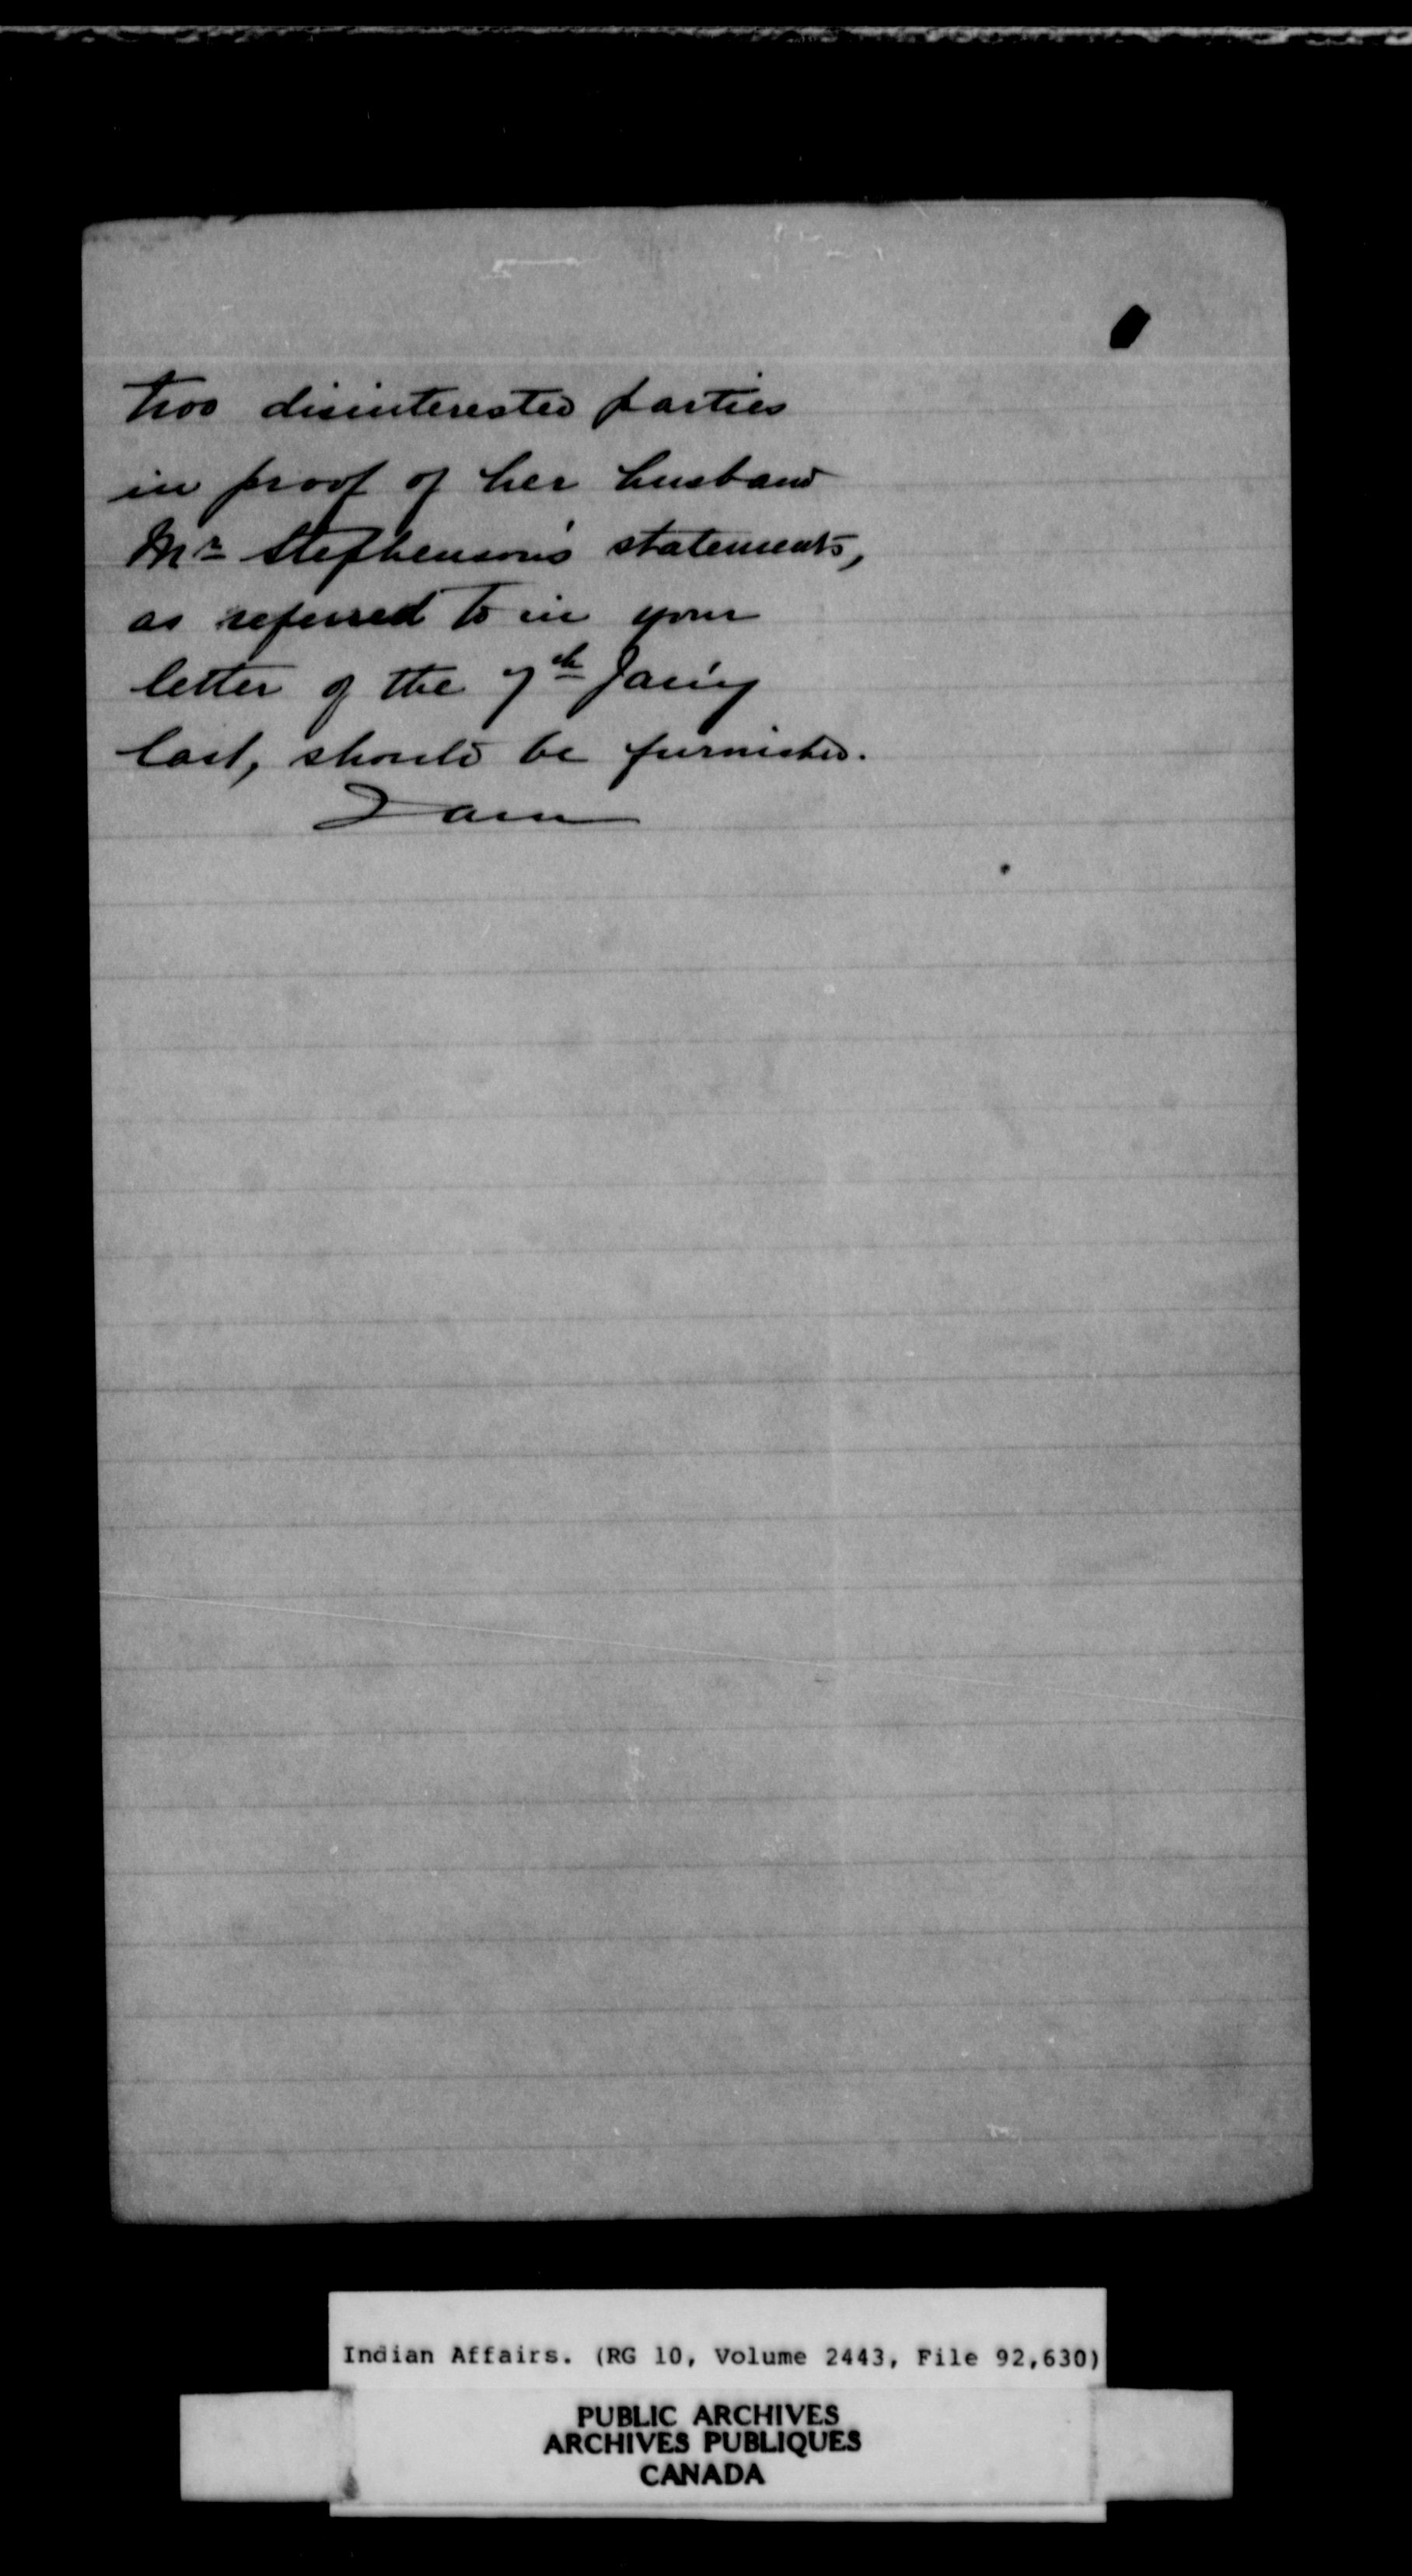 two disinterested parties
in proof of her husband
Mr Stephenson's statements,
as referred to in your
letter of the 7th Jan'y
last, should be furnished.
I am
Indian Affairs. (RG 10, Volume 2443, File 92,630)
PUBLIC ARCHIVES
ARCHIVES PUBLIQUES
CANADA